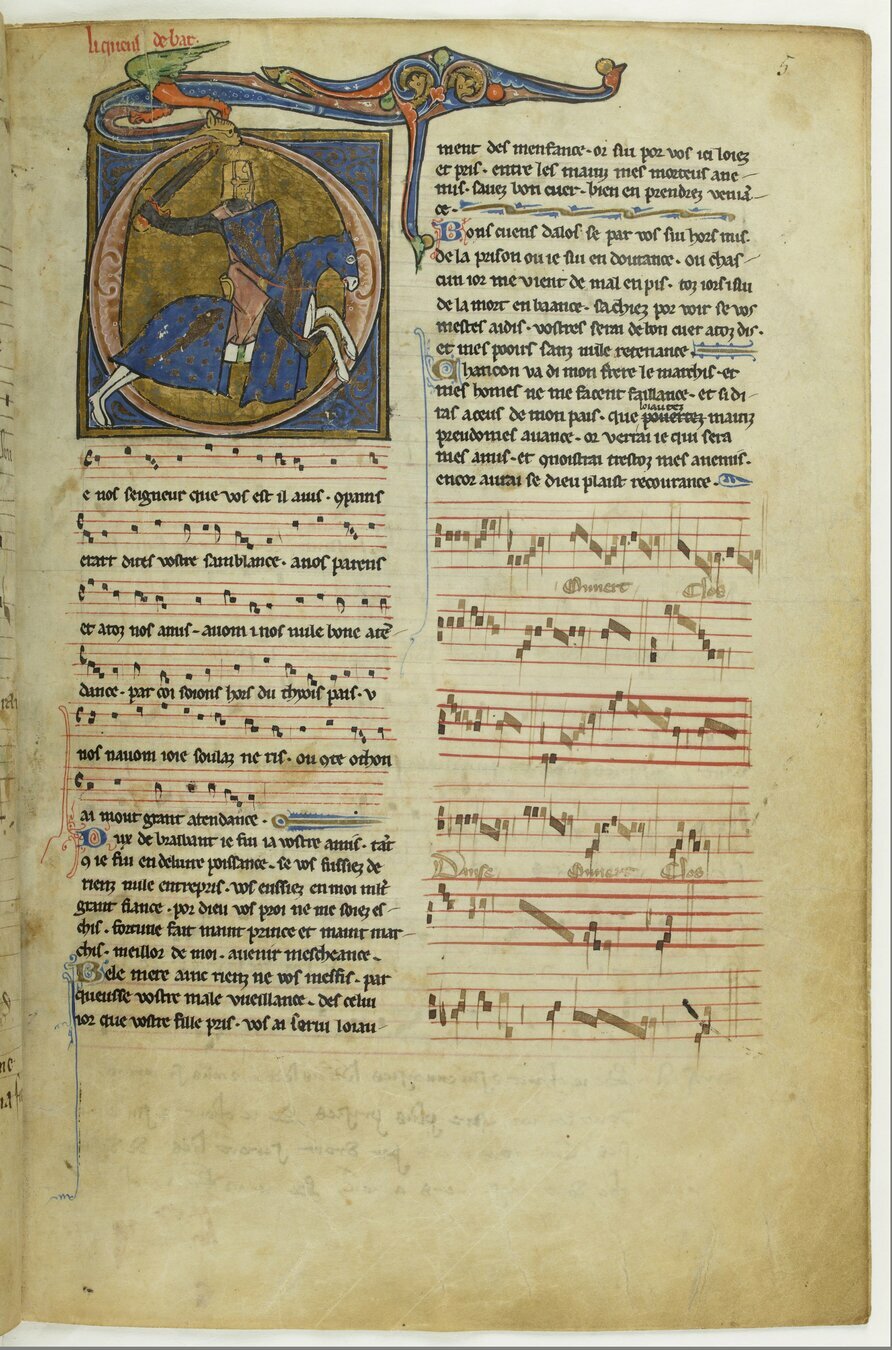 li quens de bar.
5
e nos seigneur que vos est il auis. 9panis
erart dites vostre samblance. a nos parens
et a toz nos amis. auom i nos nule bone atē
dance. par coi soions hors du thyois pais. v
nos nauom ioie soulaz ne ris. ou 9te othon
ai mout grant atendance.
Dux de braibant ie fui ia vostre amis. tāt
9 ie fui en deliure poissance. se vos fussiez de
rienz nule entrepris. vos eussiez en moi mlt
grant fiance. por dieu vos proi ne me soiez es
chis. fortune fait maint prince et maint mar
chis. meillor de moi. auenir mescheance.
Bele mere ainc rienz ne vos meffis. par
queusse vostre male vueillance. des celui
ior que vostre fille pris. vos ai serui loiau
ment des menfance. or sui por vos ici loiez
et pris. entre les mainz mes morteus ane
mis. sauez bon cuer. bien en prendrez veniā
ce.
Bons cuens dalos se par vos sui hors mis.
de la prison ou ie sui en doutance. ou chas
cun ior me vient de mal en pis. toz iors i sui
de la mort en baance. sachiez por voir se vos
mestes aidis. vostres serai de bon cuer a toz dis.
et mes pooirs sanz nule retenance.
Chancon va di mon frere le marchis. et
mes homes ne me facent faillance. et si di
loiautez
ras a ceus de mon pais. que pouertez mainz
preudomes auance. or verrai ie qui sera
mes amis. et quoistrai trestoz mes anemis.
encor aurai se dieu plaist recourance.
Ouuert Clos
Danse Ouuert Clos